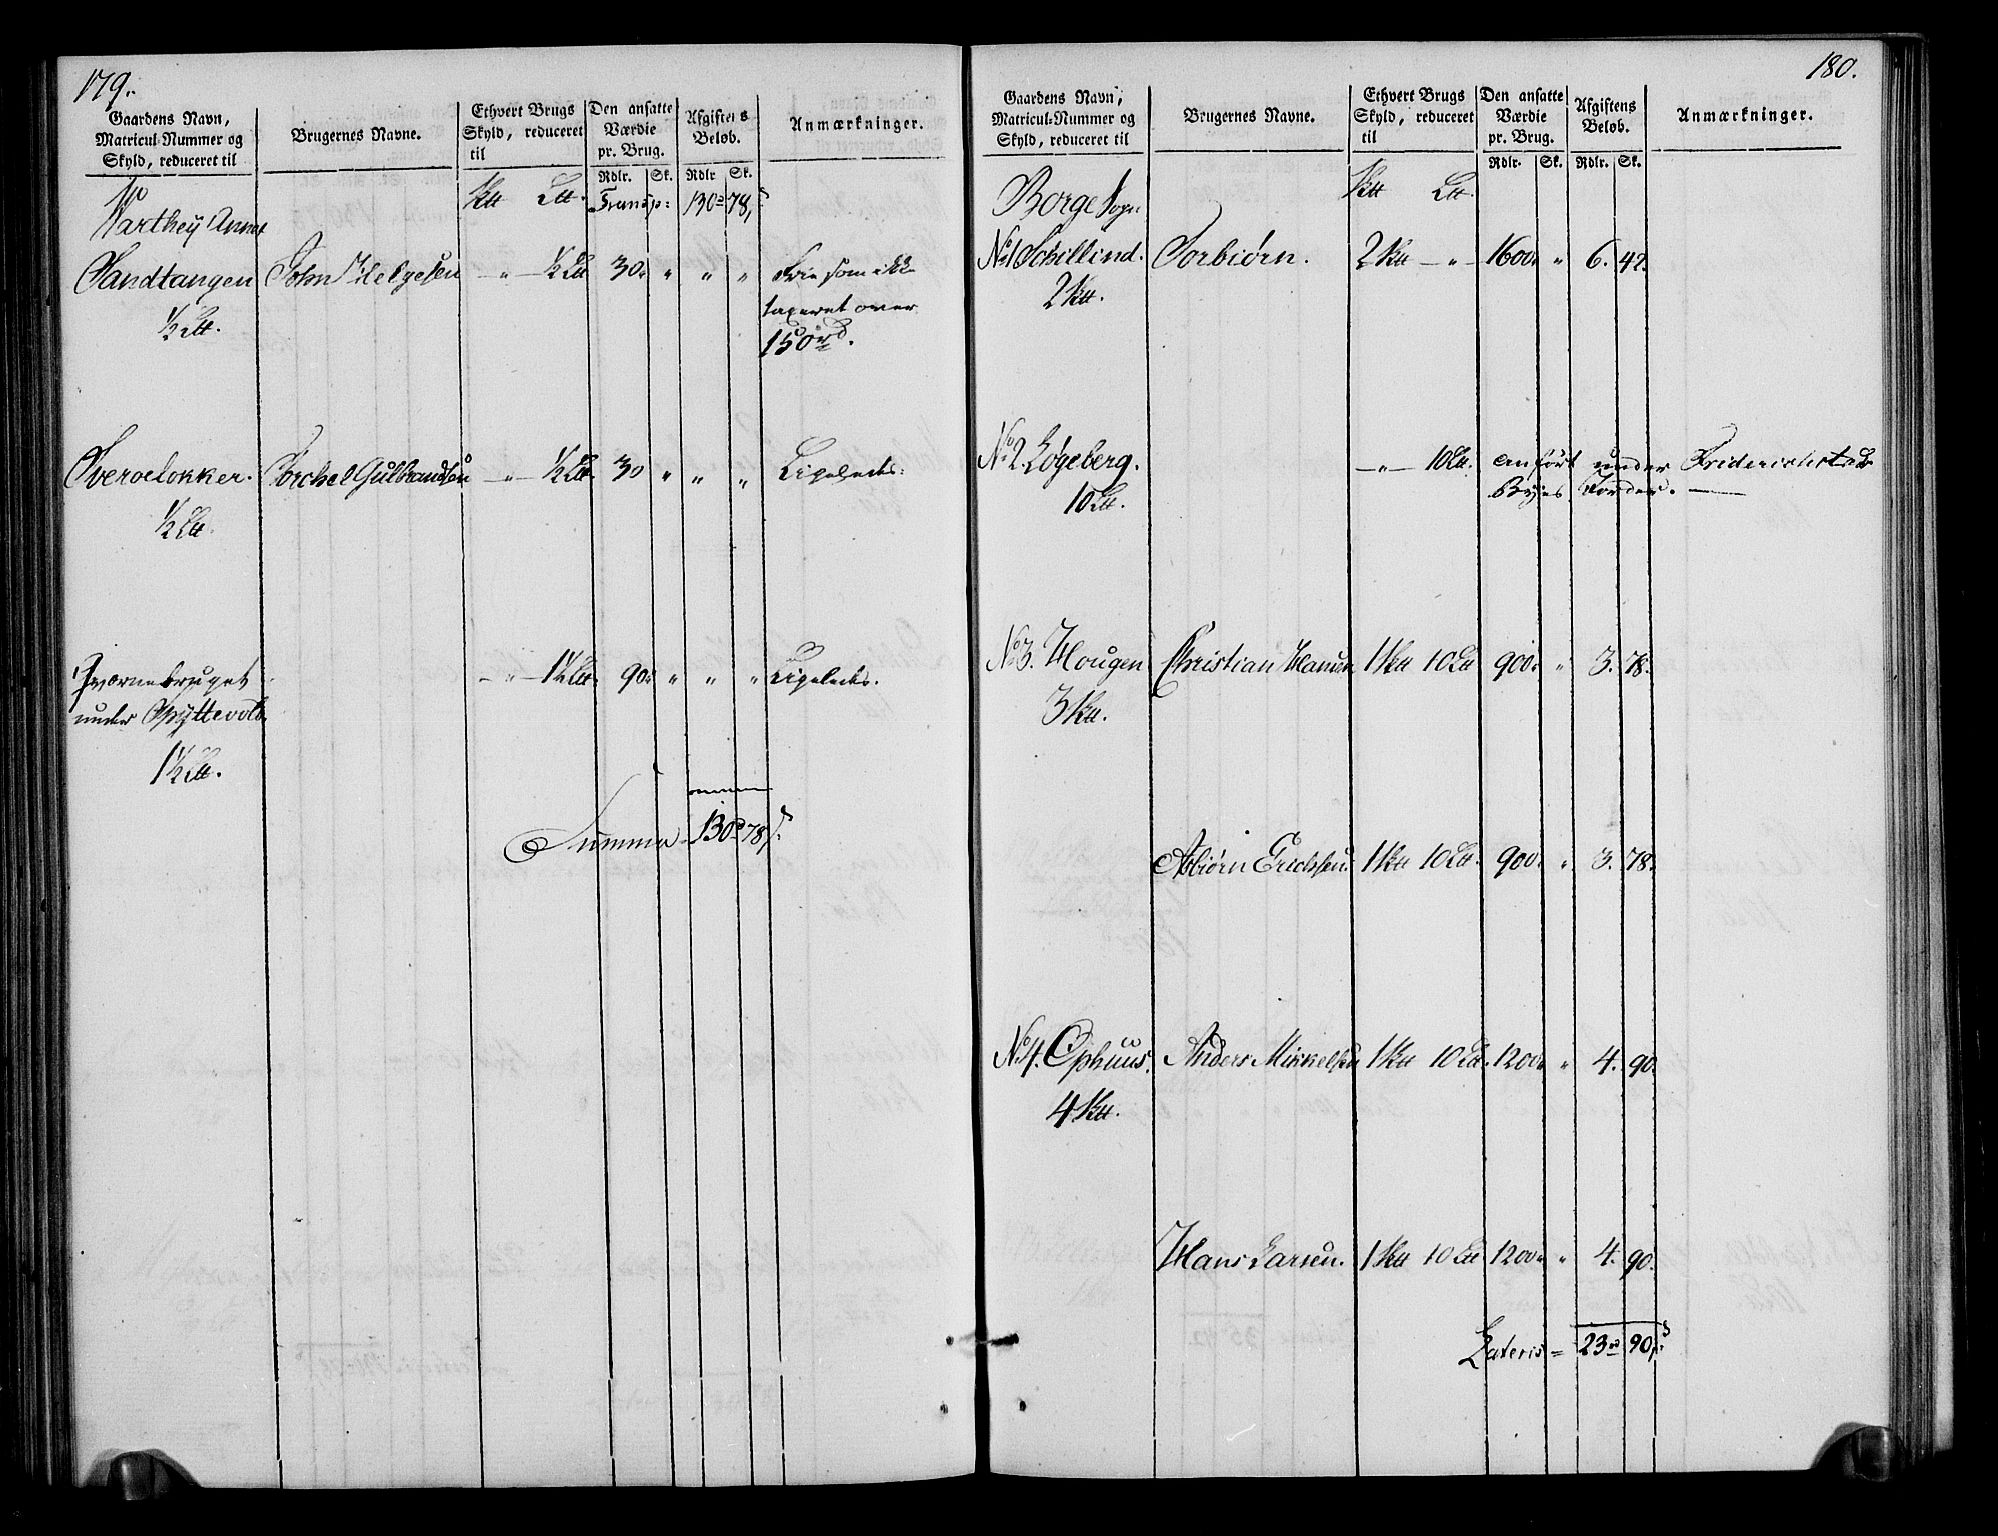 179.
Gaardens Navn, Matricul-Nummer og Skyld, reduceret til
Brugernes Navne.
Ethvert Brugs Skyld, reduceret til
Den ansatte Værdie pr. Brug.
Afgiftens Beløb.
Anmærkninger.
Rdlr. Sk. Rdlr Sk.
Anner
Transp: 130 78
Sandtangen John Helgesen — " — ½ 30. " " " Frie som ikke
½ taxeret over
150 rd.
Sveroelokker. Torchel Gulbrandsen — " — ½ 30 " " " Ligeledes.
½
Qvernebruget — " — 1½ 90. " " " Ligeledes.
under Spyttevold
1½
Summa 130 78
180.
Gaardens Navn, Matricul-Nummer og Skyld, reduceret til
Brugernes Navne.
Ethvert Brugs Skyld, reduceret til
Den ansatte Værdie pr. Brug.
Afgiftens Beløb.
Anmærkninger.
Rdlr. Sk. Rdlr. Sk.
Borge Sogn
No. 1 Torbiørn. 2 — " — 1600. " 6. 42.
2
No. 2. Løgeberg. — " — 10 anført under Friderichstads
10 Byes Jorder. —
No. 3. Hougen Christian Hansen 1 10 900. " 3. 78.
3
Asbiørn Erichsen. 1 10 900. " 3. 78.
No. 4. Ophuus. Anders Mikkelsen 1 10 1200. " 4. 90.
4
Hans Larsen. 1 10 1200. " 4. 90.
Lateris = 23 90